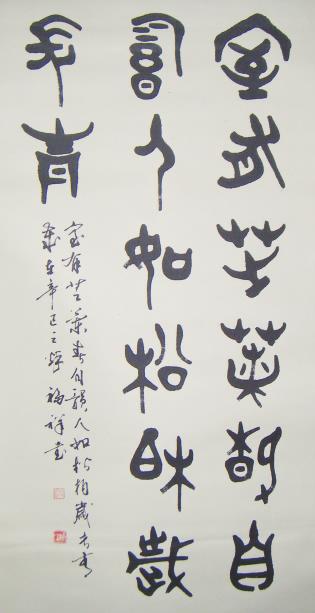 室有芝蘭春自
韻人如松柏歲
長青
室有芝蘭春自韻人如松柏歲長青
歲在辛巳之 福祥書